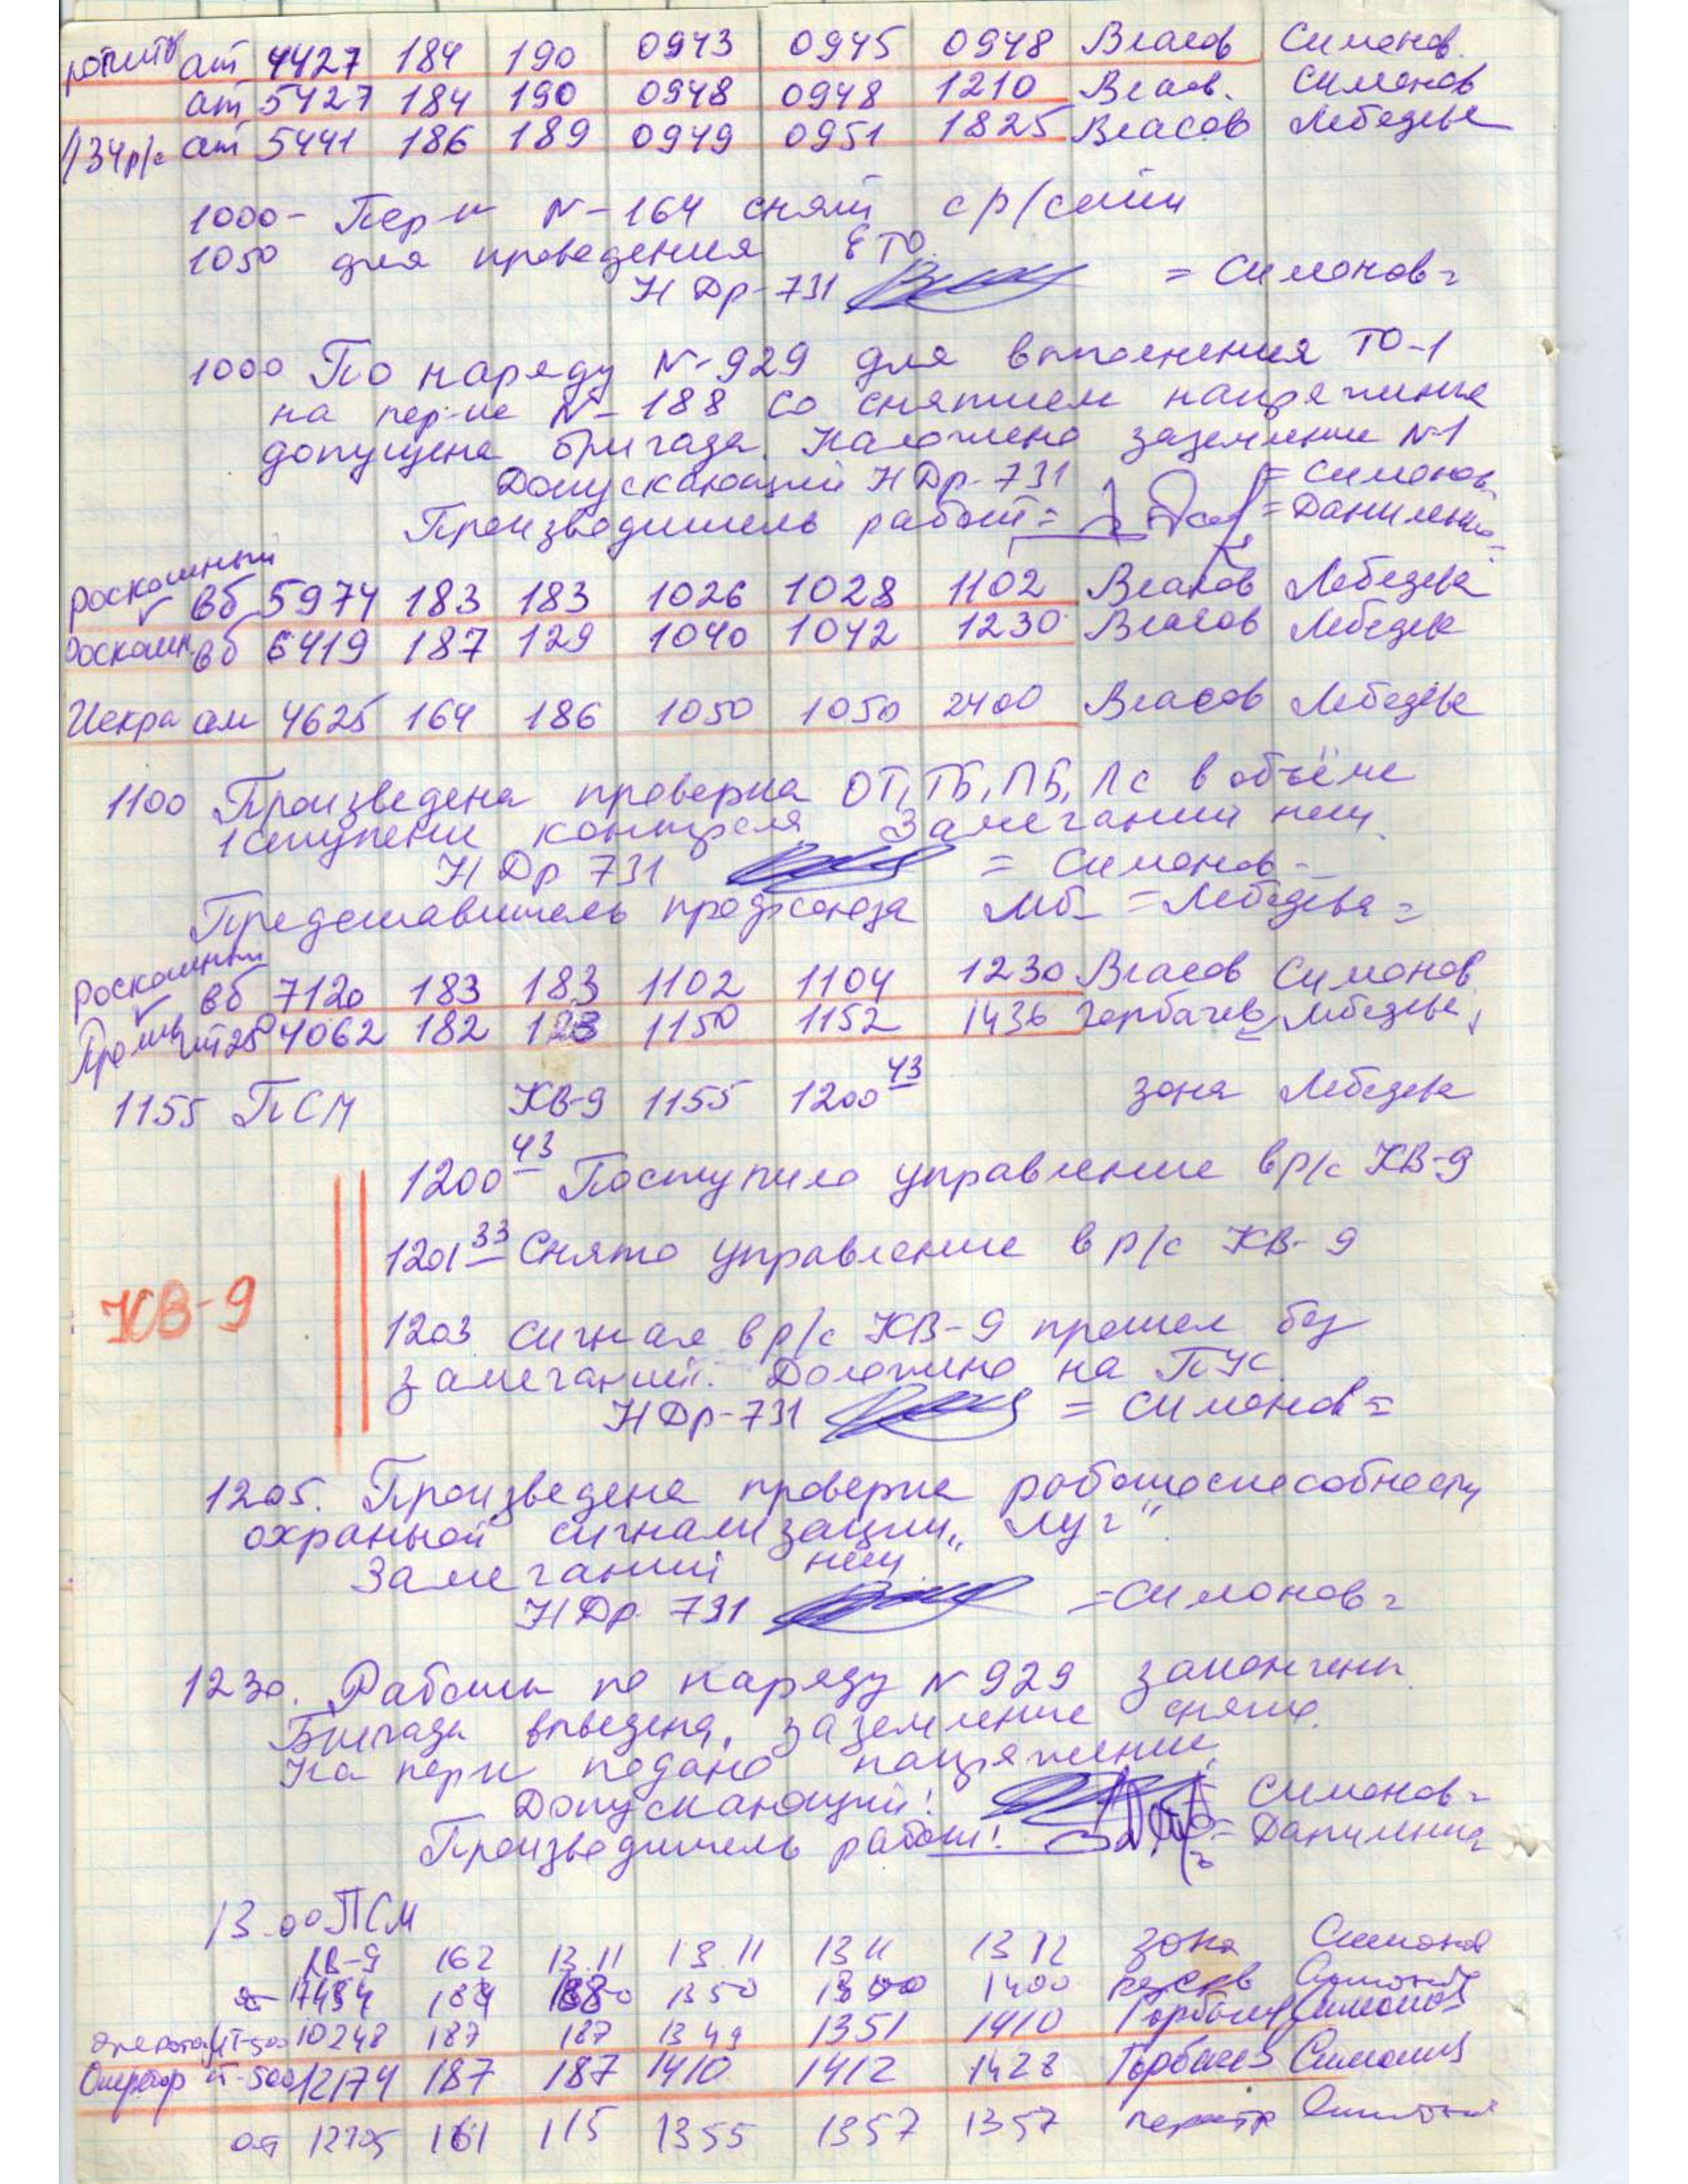 ат 4427 184 190 0943 0945 0948 Власов Симонов.
ат 5427 184 190 0948 0948 1210 Власов. Симонов
134р/с ат 5441 186 189 0949 0951 1825 Власов Лебедева
1000- Пер-к N-164 снят с р/сети
1050 для проведения ЕТО.
НДр-731 = Симонов =
1000 По наряду N-929 для выполнения ТО-1
на пер-ке N-188 со снятием напряжения
допущена бригада. Наложено заземление N-1
Допускающий НДр-731 = Симонов
Производитель работ = = Даниленко =
роскошный
вб 5974 183 183 1026 1028 1102 Власов Лебедева
роскошн. вб 6419 187 129 1040 1042 1230 Власов Лебедева
Искра ам 4625 164 186 1050 1050 2400 Власов Лебедева
1100 Произведена проверка ОТ, ТБ, ПБ, Лс в объёме
1 ступени контроля. Замечаний нет.
НДр 731 = Симонов -
Представитель профсоюза = Лебедева =
роскошный
вб 7120 183 183 1102 1104 1230 Власов Симонов
4062 182 123 1150 1152 1436 Горбачев Лебедева
1155 ПСМ КВ-9 1155 1200 43 зона Лебедева
1200 43 Поступило управление в р/с КВ-9
1201 33 Снято управление в р/с КВ-9
КВ-9
1203 сигнал в р/с КВ-9 прошел без
замечаний. Доложено на ПУС.
НДр-731 = Симонов =
1205. Произведена проверка работоспособности
охранной сигнализации „Луг“.
Замечаний нет.
НДр. 731 = Симонов =
1230. Работы по наряду N 929 закончены.
Бригада выведена, заземление снято.
На пер-к подано напряжение.
Допускающий: Симонов =
Производитель работ: = Даниленко
13.00 ПСМ
КВ-9 162 13.11 13.11 1311 1312 зона Симонов
184 1350 1400 Симонов
10248 187 187 1349 1351 1410 Горбачев Симонов
Оператор ат-500 12174 187 187 1410 1412 1428 Горбачев Симонов
ат 12705 161 115 1355 1357 1357 Симонов